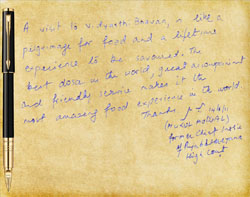 A visit to Vidyarthi Bhavan, is like a
pilgrimage for food and a lifetime
experience to be savoured. The
best dosa in the world, great arrangement
and friendly service makes it the
most amazing food experience in the world
Thanks
former Chief Justice
of Punjab & Haryana
High Court